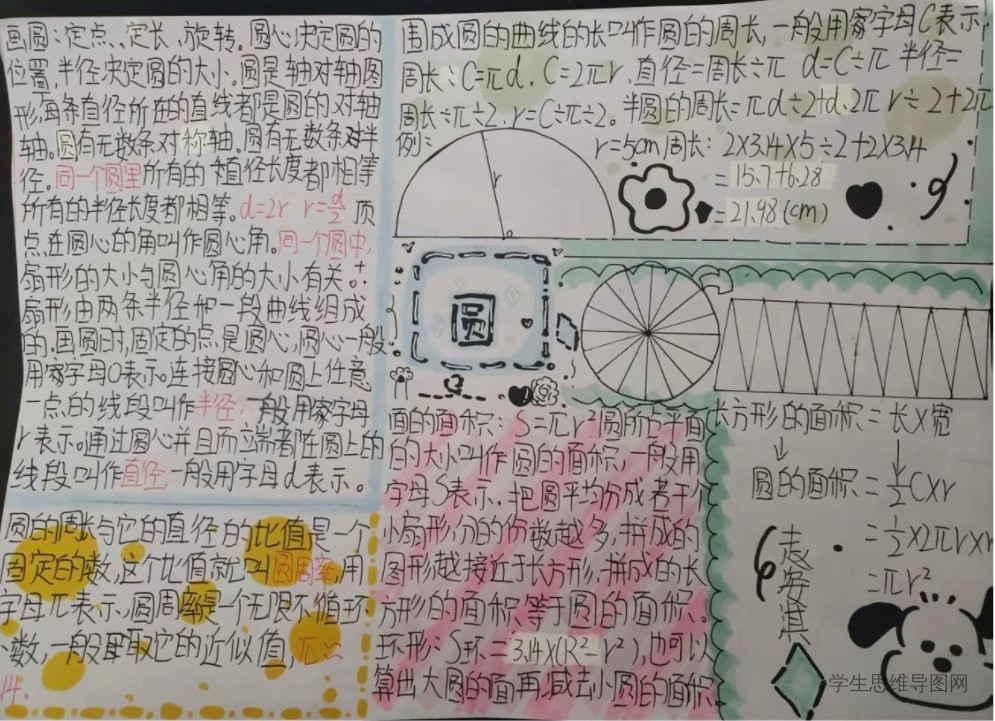 画圆:定点、定长、旋转。圆心决定圆的
位置,半径决定圆的大小。圆是轴对轴图
形,每条直径所在的直线都是圆的对轴
轴。圆有无数条对称轴。圆有无数条对半
径。同一个圆里所有的直径长度都相等
所有的半径长度者都相等。d=2r r=d/2 顶
点在圆心的角叫作圆心角。同一个圆中,
扇形的大小与圆心角的大小有关。
扇形由两条半径和一段曲线组成
的。画圆时,固定的点是圆心,圆心一般
用字母O表示。连接圆心和圆上任意
一点的线段叫作半径,一般用字母
r表示。通过圆心并且两端都在圆上的
线段叫作直径一般用字母d表示。
圆的周长与它的直径的比值是一个
固定的数,这个比值就叫圆周率,用
字母π表示,圆周率是一个无限不循环
数,一般取它的近似值,π≈
14.
围成圆的曲线的长叫作圆的周长,一般用字母C表示,
周长:C=πd,C=2πr,直径=周长÷π d=C÷π 半径=
周长÷π÷2,r=C÷π÷2。半圆的周长=πd÷2+d、2πr÷2+2
例:
r
r=5cm 周长:2×3.14×5÷2+2×3.14
=15.7+6.28
=21.98(cm)
圆
面的面积:S=πr²圆所占平面
的大小叫作圆的面积,一般用
字母S表示。把圆平均分成若干个
小扇形,分的份数越多,拼成的
图形越接近于长方形,拼成的长
方形的面积等于圆的面积。
环形:S环=3.14×(R²-r²),也可以
算出大圆的面再减去小圆的面积
长方形的面积=长×宽
圆的面积=½C×r
=½×2πr×r
=πr²
学生思维导图网